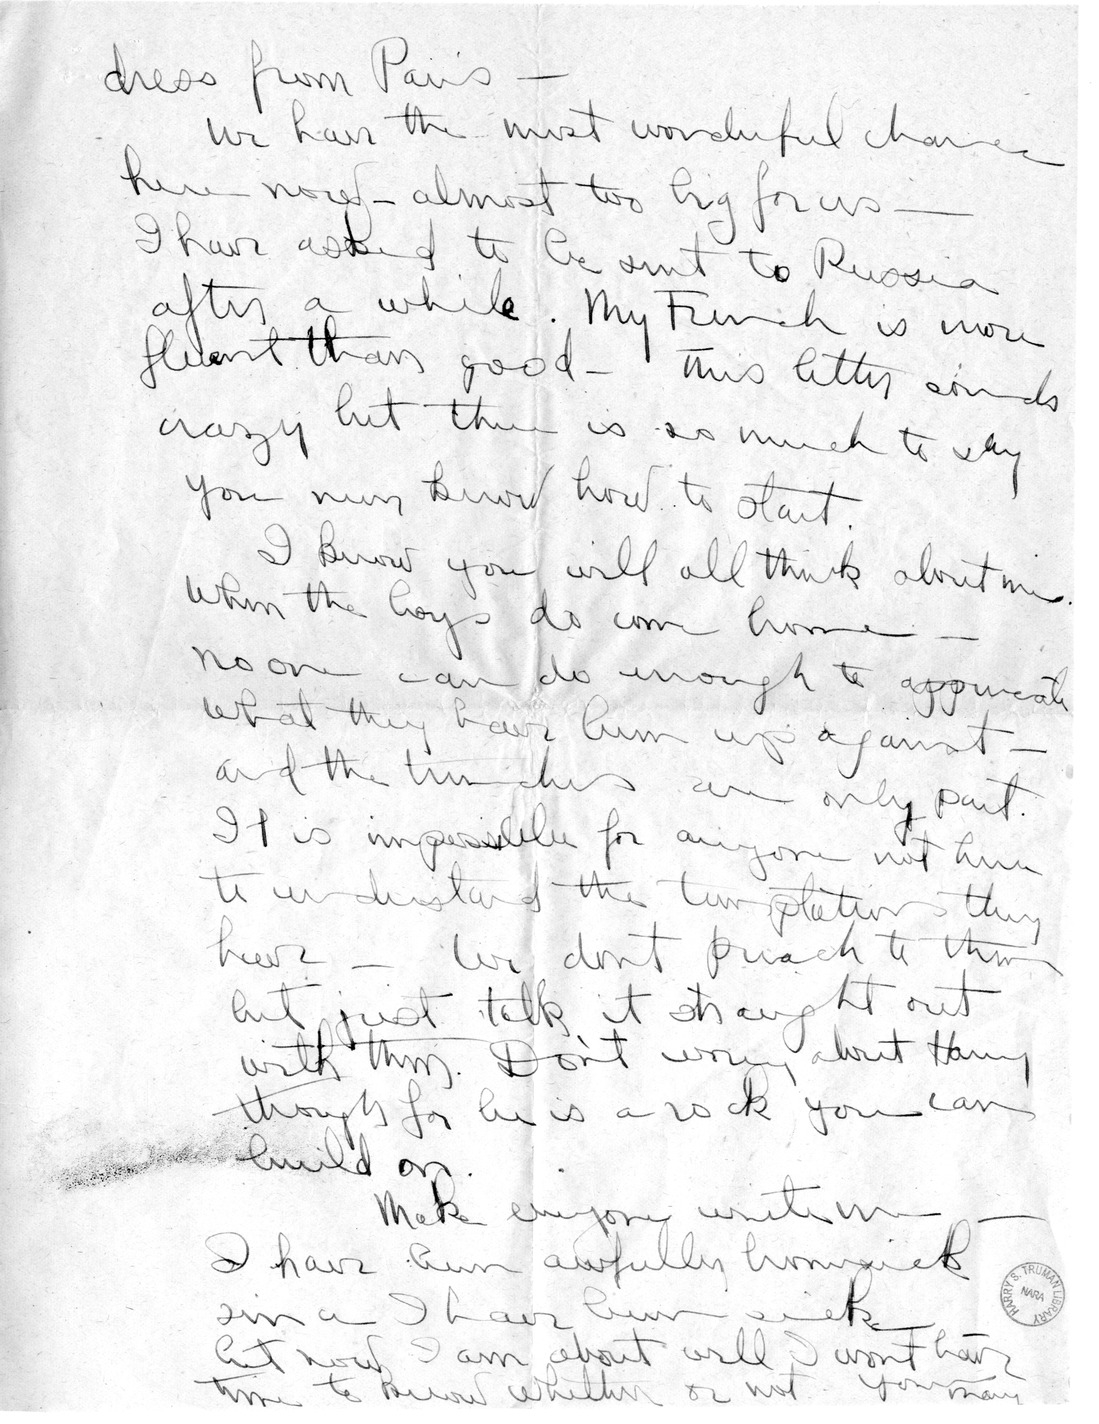 dress from Paris —
We have the most wonderful chance
here now — almost too big for us —
I have asked to be sent to Russia
after a while. My French is more
fluent than good — This letter sounds
crazy but there is so much to say
you never know how to start.
I know you will all think about me
when the boys do come home —
no one can do enough to appreciate
what they have been up against —
and the trenches are only part.
It is impossible for anyone not here
to understand the temptations they
have — We don't preach to them
but just talk it straight out
with them. Don't worry about Harry
though for he is a rock you can
build on.
Make everyone write me —
I have been awfully homesick
since I have been sick
but now I am about well I won't have
time to know whether or not. You may
HARRY S. TRUMAN LIBRARY
NARA